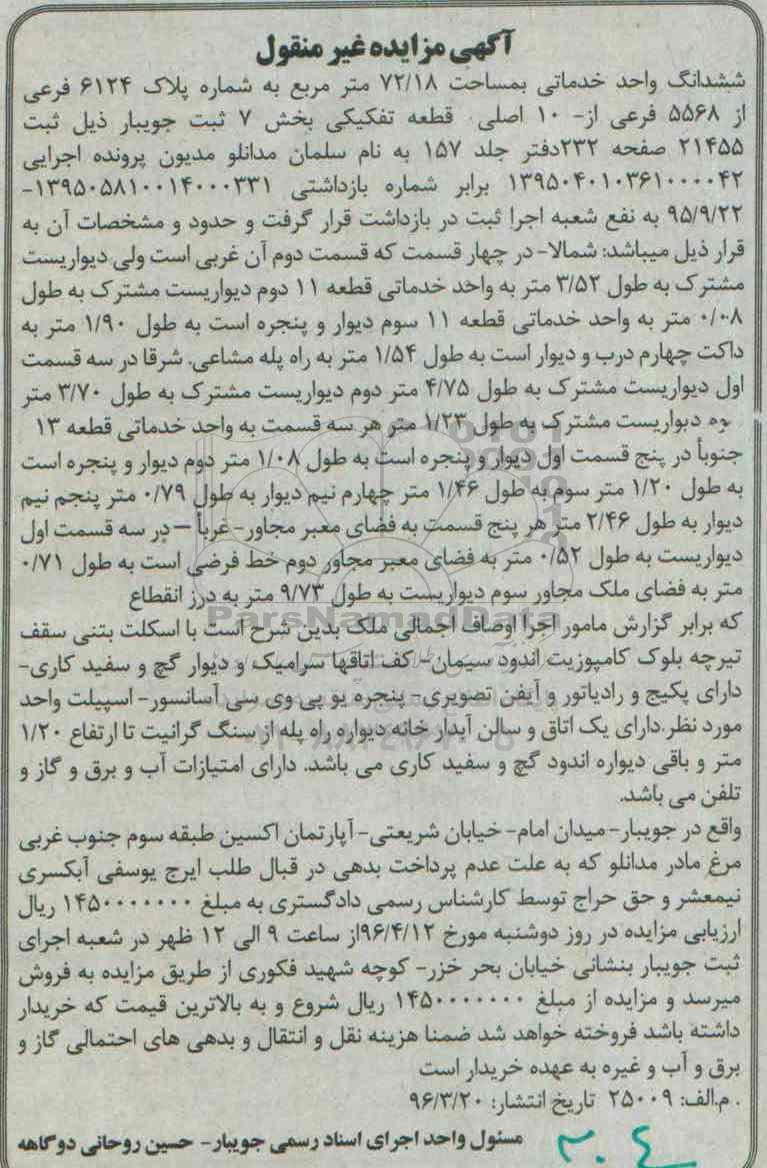 آگهی مزایده غیر منقول
ششدانگ واحد خدماتی بمساحت ۷۲/۱۸ متر مربع به شماره پلاک ۶۱۲۴ فرعی
از ۵۵۶۸ فرعی از- ۱۰ اصلی قطعه تفکیکی بخش ۷ ثبت جویبار ذیل ثبت
۲۱۴۵۵ صفحه ۲۳۲دفتر جلد ۱۵۷ به نام سلمان مدانلو مدیون پرونده اجرایی
۱۳۹۵۰۴۰۱۰۳۶۱۰۰۰۰۴۲ برابر شماره بازداشتی ۱۳۹۵۰۵۸۱۰۰۱۴۰۰۰۳۳۱-
۹۵/۹/۲۲ به نفع شعبه اجرا ثبت در بازداشت قرار گرفت و حدود و مشخصات آن به
قرار ذیل میباشد: شمالا- در چهار قسمت که قسمت دوم آن غربی است ولی دیواریست
مشترک به طول ۳/۵۲ متر به واحد خدماتی قطعه ۱۱ دوم دیواریست مشترک به طول
۰/۰۸ متر به واحد خدماتی قطعه ۱۱ سوم دیوار و پنجره است به طول ۱/۹۰ متر به
داکت چهارم درب و دیوار است به طول ۱/۵۴ متر به راه پله مشاعی. شرقا در سه قسمت
اول دیواریست مشترک به طول ۴/۷۵ متر دوم دیواریست مشترک به طول ۳/۷۰ متر
دیواریست مشترک به طول ۱/۲۳ متر هر سه قسمت به واحد خدماتی قطعه ۱۳
جنوبأ در پنج قسمت اول دیوار و پنجره است به طول ۱/۰۸ متر دوم دیوار و پنجره است
به طول ۱/۲۰ متر سوم به طول ۱/۴۶ متر چهارم نیم دیوار به طول ۰/۷۹ متر پنجم نیم
دیوار به طول ۲/۴۶ متر هر پنج قسمت به فضای معبر مجاور- غربأ – در سه قسمت اول
دیواریست به طول ۰/۵۲ متر به فضای معبر مجاور دوم خط فرضی است به طول ۰/۷۱
متر به فضای ملک مجاور سوم دیواریست به طول ۹/۷۳ متر به درز انقطاع
ParsNamadData
که برابر گزارش مامور اجرا اوصاف اجمالی ملک بدین شرح است با اسکلت بتنی سقف
تیرچه بلوک کامپوزیت اندود سیمان- کف اتاقها سرامیک و دیوار گچ و سفید کاری-
دارای پکیج و رادیاتور و آیفن تصویری- پنجره یو پی وی سی آسانسور- اسپیلت واحد
مورد نظر.دارای یک اتاق و سالن آبدار خانه دیواره راه پله از سنگ گرانیت تا ارتفاع ۱/۲۰
متر و باقی دیواره اندود گچ و سفید کاری می باشد. دارای امتیازات آب و برق و گاز و
تلفن می باشد.
واقع در جویبار- میدان امام- خیابان شریعتی- آپارتمان اکسین طبقه سوم جنوب غربی
مرغ مادر مدانلو که به علت عدم پرداخت بدهی در قبال طلب ایرج یوسفی آبکسری
نیمعشر و حق حراج توسط کارشناس رسمی دادگستری به مبلغ ۱۴۵۰۰۰۰۰۰۰ ریال
ارزیابی مزایده در روز دوشنبه مورخ ۹۶/۴/۱۲از ساعت ۹ الی ۱۲ ظهر در شعبه اجرای
ثبت جویبار بنشانی خیابان بحر خزر- کوچه شهید فکوری از طریق مزایده به فروش
میرسد و مزایده از مبلغ ۱۴۵۰۰۰۰۰۰۰ ریال شروع و به بالاترین قیمت که خریدار
داشته باشد فروخته خواهد شد ضمنا هزینه نقل و انتقال و بدهی های احتمالی گاز و
برق و آب و غیره به عهده خریدار است
م.الف: ۲۵۰۰۹ تاریخ انتشار: ۹۶/۳/۲۰
مسئول واحد اجرای اسناد رسمی جویبار- حسین روحانی دوگاهه